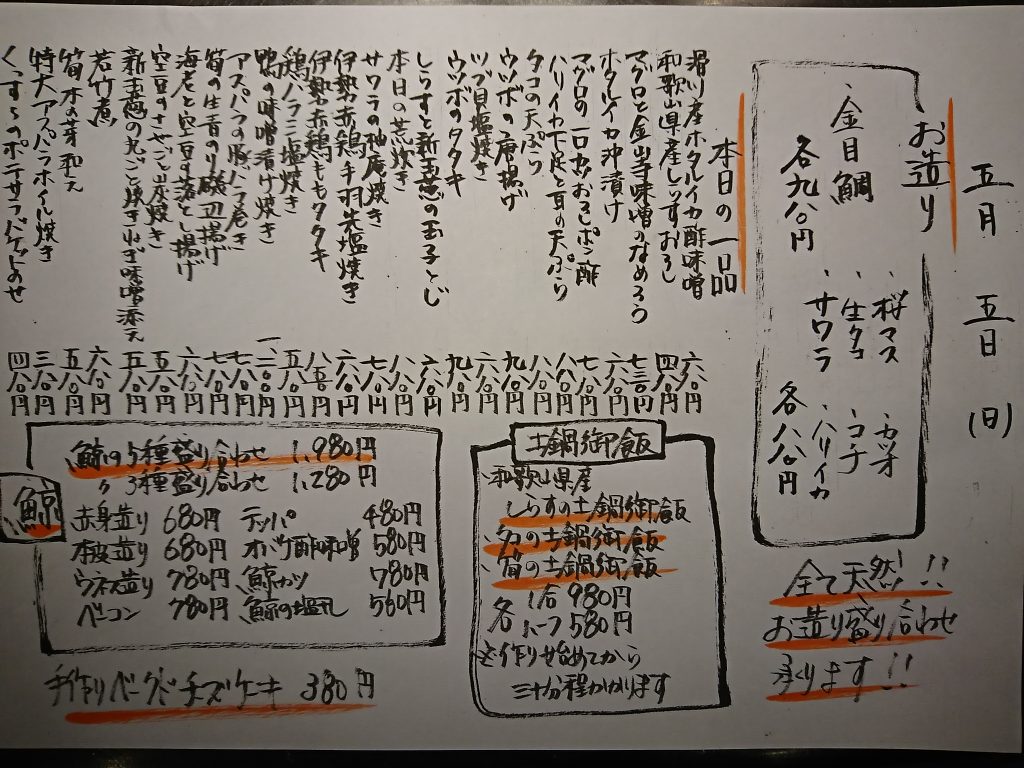 五月 五日 (日)
お造り
、桜マス 、カツオ
、金目鯛 、生タコ 、コチ
、サワラ 、ハリイカ
各九八〇円 各八八〇円
全て天然!!
お造り盛り合わせ
承ります!!
本日の一品
滑川産ホタルイカ酢味噌 六八〇円
和歌山県産しらすおろし 四八〇円
マグロと金山寺味噌のなめろう 七三〇円
ホタルイカ沖漬け 六八〇円
マグロの一口カツおろしポン酢 七八〇円
ハリイカ下足と耳の天ぷら 八八〇円
タコの天ぷら 八八〇円
ウツボの唐揚げ 九八〇円
ツブ貝塩焼き 六八〇円
ウツボのタタキ 九八〇円
しらすと新玉葱の玉子とじ 六八〇円
本日の荒炊き 八八〇円
サワラの柚庵焼き 七八〇円
伊勢赤鶏手羽先塩焼き 六八〇円
伊勢赤鶏ももタタキ 八五〇円
鶏ハラミ塩焼き 五八〇円
鴨の味噌漬け焼き 一、二八〇円
アスパラの豚バラ巻き 七八〇円
筍の生青のり磯辺揚げ 七八〇円
海老と空豆の落とし揚げ 六八〇円
空豆のさやごと炭焼き 五八〇円
新玉葱の丸ごと焼きねぎ味噌添え 五八〇円
若竹煮 六八〇円
筍木の芽和え 五八〇円
特大アスパラホイル焼き 三八〇円
くっすらのポテサラバケットのせ 四八〇円
土鍋御飯
、和歌山県産
しらすの土鍋御飯
、タコの土鍋御飯
、筍の土鍋御飯
各 1合 980円
ハーフ 580円
※作り始めてから
三十分程かかります
鯨
鯨の5種盛り合わせ 1,980円
〃 3種盛り合わせ 1,280円
赤身造り 680円 テッパ 480円
本皮造り 680円 オバケ酢味噌 580円
ウネス造り 780円 鯨カツ 780円
ベーコン 780円 鯨の塩孔 560円
手作りベークドチーズケーキ 380円